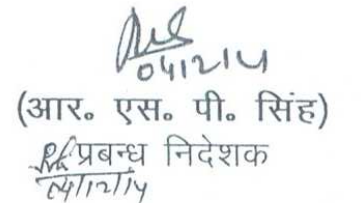 04/12/14
(आर० एस० पी० सिंह)
प्रबन्ध निदेशक
04/12/14